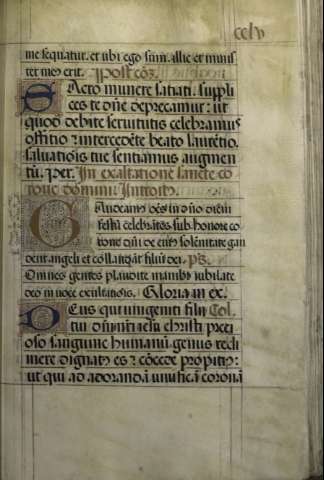 celv
me sequatur. et ubi ego sum. illic et minis
ter meus erit. Post cōз.
SActo munere satiati. suppli
ces te dn̄e deprecamur: ut
quod debite seruitutis celebramus
officio intercedēte beato laurētio.
saluatiōis tue sentiamus augmen
tū. per. In exaltatione sancte co
rone domini Introitus.
Gaudeamus ōēs in dn̄o diem
festū celebrātes sub honore co
rone
dent angeli et collaudāt filiū dei. ps.
Omnes gentes plaudite manibus iubilate
deo in uoce exultatiōis. Gloria in ex. Col.
DEus qui unigeniti filii
tui dn̄i nr̄i iesu christi preci
oso sanguine humanū genus redi
mere dignatus es cōcede propitius:
ut qui ad adorandā uiuificā coronā